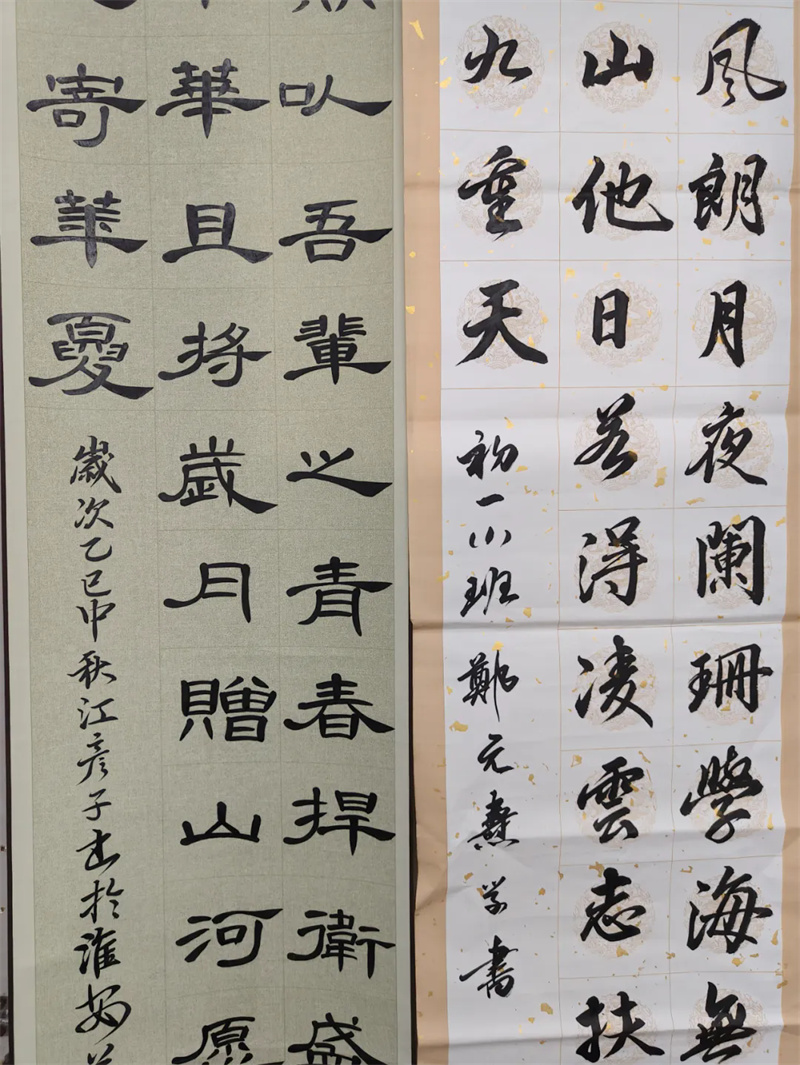 風朗月夜闌珊學海無
山他日若得凌雲志扶
九重天
初一小班鄭元学書
以吾輩之青春捍衛盛
華且将歲月贈山河愿
寄華夏
歲次乙巳中秋江彦子书於淮安